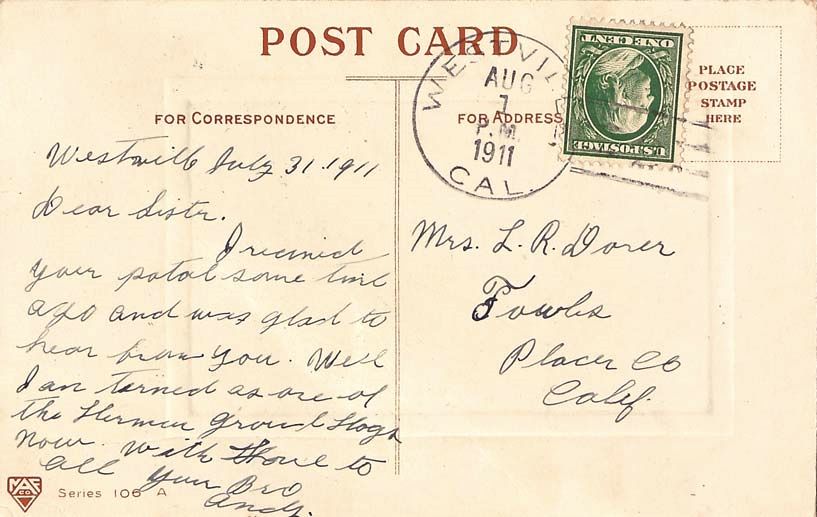 POST CARD
WESTVIL
AUG
7
P.M.
1911
CAL.
ONE CENT
U.S. POSTAGE
PLACE
POSTAGE
STAMP
HERE
FOR CORRESPONDENCE
FOR ADDRESS
Westville July 31. 1911
Dear Sister.
I recived
your postal some time
ago and was glad to
hear from you. Well
I am turned as one of
the Ground Hogs
now. With to
all Your Bro
Andy.
Mrs. L. R. Dorer
Towles
Placer Co
Calif.
MAF
CO
Series 106 A